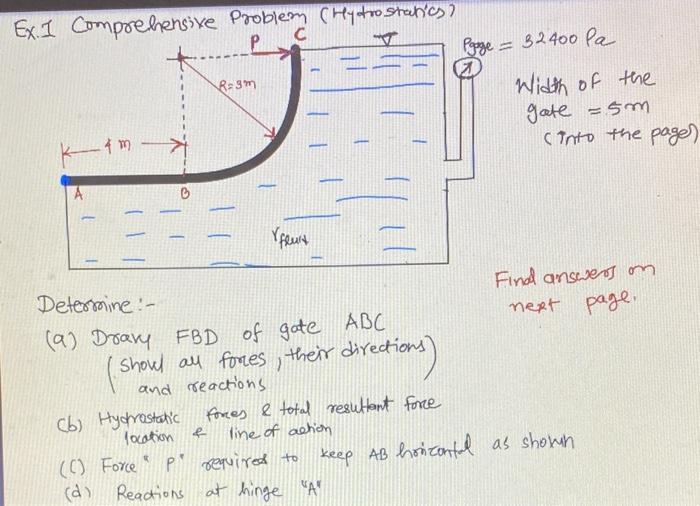 Ex.1 Comprehensive Problem (Hydrostatics)
P C
Pgage = 32400 Pa
R=3m
Width of the
gate = 5m
(into the page)
4 m
A B
γfluid
Find answers on
next page.
Determine:-
(a) Draw FBD of gate ABC
(show all forces, their directions)
and reactions
(b) Hydrostatic forces & total resultant force
location & line of action
(c) Force "P" required to keep AB horizontal as shown
(d) Reactions at hinge "A"